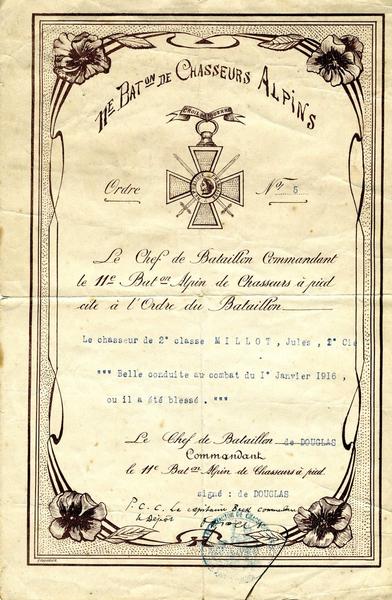 11E BATON DE CHASSEURS ALPINS
CROIX DE GUERRE
Ordre No 5
Le Chef de Bataillon Commandant
le 11e Baton Alpin de Chasseurs à pied
cite à l'Ordre du Bataillon
Le chasseur de 2° classe MILLOT, Jules, 2° Cie
""" Belle conduite au combat du 1° Janvier 1916,
ou il a été blessé. """
Le Chef de Bataillon de DOUGLAS
Commandant
le 11e Baton Alpin de Chasseurs à pied.
signé : de DOUGLAS
P.C.C. Le capitaine commandant
le Dépôt